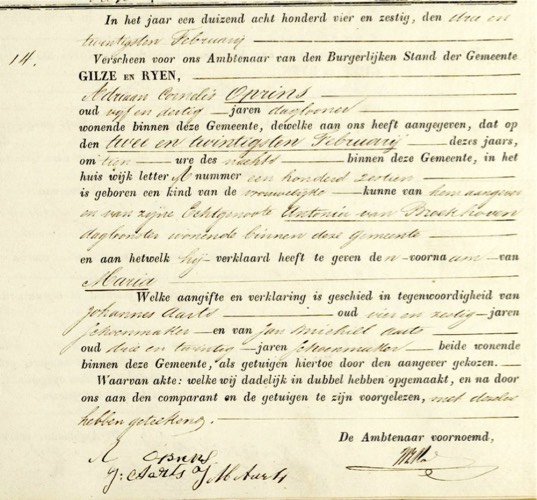 In het jaar een duizend acht honderd vier en zestig, den drie en
twintigsten Februarij
14.
Verscheen voor ons Ambtenaar van den Burgerlijken Stand der Gemeente
GILZE EN RYEN,
Adriaan Cornelis Oprins
oud vijf en dertig jaren daglooner
wonende binnen deze Gemeente, dewelke aan ons heeft aangegeven, dat op
den twee en twintigsten Februarij dezes jaars,
om tien ure des nachts binnen deze Gemeente, in het
huis wijk letter A nummer een honderd zestien
is geboren een kind van de vrouwelijke kunne van hem aangever
en van zijne Echtgenoote Antonia van Broekhoven
daglooster wonende binnen deze Gemeente
en aan hetwelk hij verklaard heeft te geven den voornaam van
Maria
Welke aangifte en verklaring is geschied in tegenwoordigheid van
Johannes Aarts oud vier en zestig jaren
schoenmaker en van Jan Michiel Aarts
oud drie en twintig jaren schoenmaker beide wonende
binnen deze Gemeente, als getuigen hiertoe door den aangever gekozen.
Waarvan akte: welke wij dadelijk in dubbel hebben opgemaakt, en na door
ons aan den comparant en de getuigen te zijn voorgelezen, met dezelve
hebben geteekend.
De Ambtenaar voornoemd,
A Oprins
J: Aarts J M Aarts